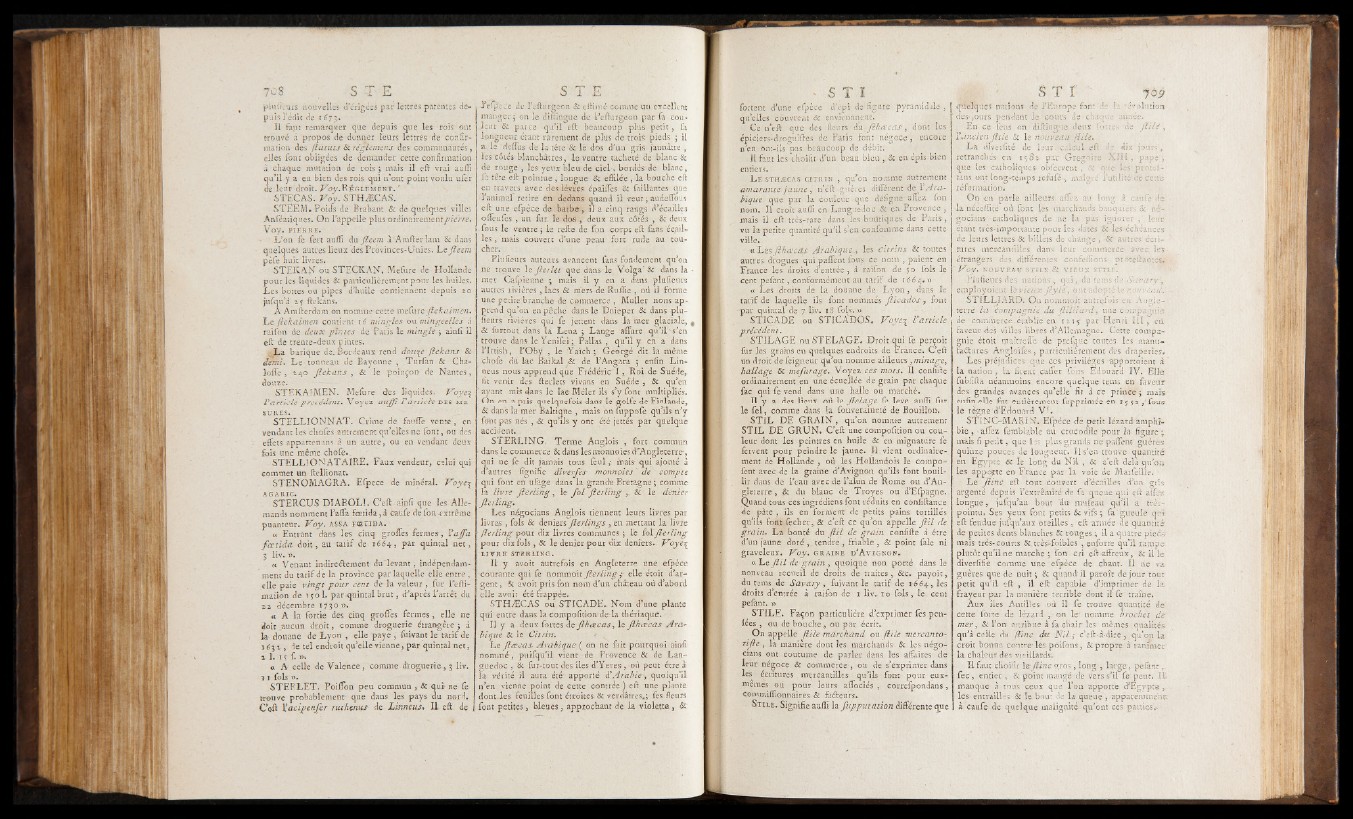 708 S T E S T E
plusieurs nouvelles d'érigées par lettres patentes de-
puis l'édit de 1673.
Il faut remarquer que depuis que les rois ont
trouvé à propos de donner leurs lettres de confir-
mation des statuts & réglemens des communautés,
elles sont obligées de demander cette confirmation
à chaque mutation de rois ; mais il est vrai aussi
qu'il y a eu bien des rois qui n'ont point voulu user
de leur droit. Voy. RÉGLEMENT.
STECAS. Voy. STHÆCAS.
STEEM. Poids de Brabant & de quelques villes
Anséatiques. On l'appelle plus ordinairement pierre.
Voy. PIERRE.
L'on se sert aussi du steem à Amsterdam & dans
quelques autres lieux des Provinces-Unies. Le steem
pèse huit livres.
STEKAN ou STECKAN. Mesure de Hollande
pour les liquides & particulièrement pour les huiles.
Les bottes ou pipes d'huile contiennent depuis 20
jusqu'à 25 stekans.
A Amsterdam on nomme cette mesure stekaimen.
Le stekaimen contient 16 mingles ou mingeelles à
raison de deux pintes de Paris le mingle ; ainsi il
est de trente-deux pintes.
La barique de Bordeaux rend douze stekans &
demi. Le tonneau de Bayonne, Tursan & Cha-
losse, 240 stekans, & le poinçon de Nantes,
douze.
STEKAIMEN. Mesure des liquides. Voyez
l'article précédent. Voyez aussi l'article DES ME-
SURES.
STELLIONNAT. Crime de fausse vente, en
vendant les choses autrement qu'elles ne sont, ou des
effets appartenans à un autre, ou en vendant deux
fois une même chose.
STELLIONATAIRE. Faux vendeur, celui qui
commet un stellionat.
STENOMAGRA. Espece de minéral. Voyez
AGARIC.
STERCUS DIABOLI. C'est ainsi que les Alle-
mands nomment l'assa fœtida, à cause de son extrême
puanteur. Voy. ASSA FŒTIDA.
« Entrant dans les cinq grosses fermes, l'assa
fœtida doit, au tarif de 1664, par quintal net,
5 liv. ».
« Venant indirectement du levant, indépendam-
ment du tarif de la province par laquelle elle entre,
elle paie vingt pour cent de la valeur, sur l'esti-
mation de 150 l. par quintal brut, d'après l'arrêt du
22 décembre 1750 ».
« A la sortie des cinq grosses fermes, elle ne
doit aucun droit, comme droguerie étrangère ; à
la douane de Lyon, elle paye, suivant le tarif de
1632, de tel endroit qu'elle vienne, par quintal net,
2 l. 15 s. ».
« A celle de Valence, comme droguerie, 3 liv.
11 sols ».
STERLET. Poisson peu commun, & qui ne se
trouve probablement que dans les pays du nord.
C'est l'acipenser ruthenus de Linneus. Il est de
l'espèce de l'esturgeon & estimé comme un excellent
manger ; on le distingue de l'esturgeon par sa cou-
leur & parce qu'il est beaucoup plus petit, sa
longueur étant rarement de plus de trois pieds ; il
a le dessus de la tête & le dos d'un gris jaunâtre,
les côtés blanchâtres, le ventre tacheté de blanc &
de rouge, les yeux bleu de ciel, bordés de blanc,
sa tête est pointue, longue & effilée, la bouche est
en travers avec des lèvres épaisses & saillantes que
l'animal retire en dedans quand il veut, audessous
est une espèce de barbe, il a cinq rangs d'écailles
osseuses, un sur le dos, deux aux côtés, & deux
sous le ventre ; le reste de son corps est sans écail-
les, mais couvert d'une peau fort rude au tou-
cher.
Plusieurs auteurs avancent sans fondement qu'on
ne trouve le sterlet que dans le Volga & dans la
mer Caspienne ; mais il y en a dans plusieurs
autres rivières, lacs & mers de Russie, où il forme
une petite branche de commerce, Muller nous ap-
prend qu'on en pêche dans le Dnieper & dans plu-
sieurs rivières qui se jettent dans la mer glaciale,
& surtout dans la Lena ; Lange assure qu'il s'en
trouve dans le Yenisei ; Pallas, qu'il y en a dans
l'Irtish, l'Oby, le Yaich ; George dit la même
chose du lac Baikal & de l'Angara ; enfin Lin-
neus nous apprend que Frédéric I, Roi de Suède,
fit venir des sterlets vivans en Suède, & qu'en
ayant mis dans le lac Méler ils s'y sont multipliés.
On en a pris quelquefois dans le golfe de Finlande,
& dans la mer Baltique, mais on suppose qu'ils n'y
sont pas nés, & qu'ils y ont été jettés par quelque
accident.
STERLING. Terme Anglois, fort commun
dans le commerce & dans les monnoies d'Angleterre,
qui ne se dit jamais tous seul ; mais qui ajouté à
d'autres signifie diverses monnoies de compte
qui sont en usage dans la grande Bretagne ; comme
la livre sterling, le sol sterling, & le denier
sterling.
Les négocians Anglois tiennent leurs livres par
livres, sols & deniers sterlings, en mettant la livre
sterling pour dix livres communes ; le sol sterling
pour dix sols, & le denier pour dix deniers. Voyez
LIVRE STERLING.
Il y avoit autrefois en Angleterre une espèce
courante qui se nommoit sterling ; elle étoit d'ar-
gent, & avoit pris son nom d'un château où d'abord
elle avoit été frappée.
STHÆCAS ou STICADE. Nom d'une plante
qui entre dans la composition de la thériaque.
Il y a deux sortes de sthœcas, le sthœcas Ara-
bique & le Citrin.
Le stœcas Arabique ( on ne sait pourquoi ainsi
nommé, puisqu'il vient de Provence & de Lan-
guedoc, & sur-tout des îles d'Yeres, où peut être à
la vérité il aura été apporté d'Arabie, quoiqu'il
n'en vienne point de cette contrée ) est une plante
dont les feuilles sont étroites & verdâtres ; ses fleurs
sont petites, bleues, approchant de la violette, &
S T I S T I 709
sortent d'une espèce d'épi de figure pyramidale,
qu'elles couvrent & environnent.
Ce n'est que des fleurs du sthœcas, dont les
épiciers-droguistes de Paris font négoce, encore
n'en ont-ils pas beaucoup de débit.
Il faut les choisir d'un beau bleu, & en épis bien
entiers.
LE STHÆCAS CITRIN, qu'on nomme autrement
amarante jaune, n'est guères différent de l'Ara-
bique que par la couleur que désigne assez son
nom. Il croît aussi en Languedoc & en Provence,
mais il est très-rare dans les boutiques de Paris,
vu la petite quantité qu'il s'en consomme dans cette
ville.
« Les sthœcas Arabique, les citrins & toutes
autres drogues qui passent sous ce nom, paient en
France les droits d'entrée, à raison de 50 sols le
cent pesant, conformément au tarif de 1664. »
« Les droits de la douane de Lyon, dans le
tarif de laquelle ils sont nommés sticados, sont
par quintal de 7 liv. 18 sols. »
STICADE ou STICADOS. Voyez l'article
précédent.
STILAGE ou STELAGE. Droit qui se perçoit
sur les grains en quelques endroits de France. C'est
un droit de seigneur qu'on nomme ailleurs, minage,
hallage & mesurage. Voyez ces mots. Il consiste
ordinairement en une écuellée de grain par chaque
sac qui se vend dans une halle ou marché.
Il y a des lieux où le stelage se leve aussi sur
le sel, comme dans la souveraineté de Bouillon.
STIL DE GRAIN, qu'on nomme autrement
STIL DE GRUN. C'est une composition ou cou-
leur dont les peintres en huile & en mignature se
servent pour peindre le jaune. Il vient ordinaire-
ment de Hollande, où les Hollandois le compo-
sent avec de la graine d'Avignon qu'ils font bouil-
lir dans de l'eau avec de l'alun de Rome ou d'An-
gleterre, & du blanc de Troyes ou d'Espagne.
Quand tous ces ingrédiens sont réduits en consistance
de pâte, ils en forment de petits pains tortillés
qu'ils font secher, & c'est ce qu'on appelle stil de
grain. La bonté du stil de grain consiste à être
d'un jaune doré, tendre, friable, & point sale ni
graveleux. Voy. GRAINE D'AVIGNON.
« Le stil de grain, quoique non porté dans le
nouveau recueil de droits de traites, &c. payoit,
du tems de Savary, suivant le tarif de 1664, les
droits d'entrée à raison de 1 liv. 10 sols, le cent
pesant. »
STILE. Façon particulière d'exprimer ses pen-
sées, ou de bouche, ou par écrit.
On appelle stile marchand ou stile mercanto-
riste, la manière dont les marchands & les négo-
cians ont coutume de parler dans les affaires de
leur négoce & commerce, ou de s'exprimer dans
les écritures mercantilles qu'ils font pour eux-
mêmes ou pour leurs associés, correspondans,
commissionnaires & facteurs.
STILE. Signifie aussi la supputation différente que
quelques nations de l'Europe font de la révolution
des jours pendant le cours de chaque année.
En ce sens on distingue deux sortes de stile,
l'ancien stile & le nouveau stile.
La diversité de leur calcul est de dix jours,
retranchés en 1582 par Gregoire XIII, pape,
que les catholiques observent, & que les protes-
tans ont long-temps refusé, malgré l'utilité de cette
réformation.
On en parle ailleurs assez au long à cause de
la nécessité où sont les marchands banquiers & né-
gocians catholiques de ne la pas ignorer, leur
étant très-importante pour les dates & les échéances
de leurs lettres & billets de change, & autres écri-
tures mercantilles dans leur commerce avec les
étrangers des différentes confessions protestantes.
Voy. NOUVEAU STILE & VIEUX STILE.
Plusieurs des nations, qui, du tems de Savary,
employoient le vieux stile, ont adopté le nouveau.
STILLJARD. On nommoit autrefois en Angle-
terre la compagnie du stilliard, une compagnie
de commerce établie en 1215 par Henri III, en
faveur des villes libres d'Allemagne. Cette compa-
gnie étoit maîtresse de presque toutes les manu-
factures Angloises, particulièrement des draperies.
Les préjudices que ces privilèges apportoient à
la nation, la firent casser sous Edouard IV. Elle
subsista néanmoins encore quelque tems en faveur
des grandes avances qu'elle fit à ce prince ; mais
enfin elle fut entièrement supprimée en 1552, sous
le règne d'Edouard VI.
STINC-MARIN. Espèce de petit lézard amphi-
bie, assez semblable au crocodile pour la figure ;
mais si petit, que les plus grands ne passent guères
quinze pouces de longueur. Il s'en trouve quantité
en Egypte & le long du Nil, & c'est delà qu'on
les apporte en France par la voie de Marseille.
Le stinc est tout couvert d'écailles d'un gris
argenté depuis l'extrémité de sa queue qui est assez
longue, jusqu'au bout du museau qu'il a très-
pointu. Ses yeux sont petits & vifs ; sa gueule qui
est fendue jusqu'aux oreilles, est armée de quantité
de petites dents blanches & rouges ; il a quatre pieds
mais très-courts & très-foibles, ensorte qu'il rampe
plutôt qu'il ne marche ; son cri est affreux, & il le
diversifie comme une espèce de chant. Il ne va
guères que de nuit ; & quand il paroît de jour tout
petit qu'il est, il est capable d'imprimer de la
frayeur par la manière terrible dont il se traîne.
Aux îles Antilles où il se trouve quantité de
cette sorte de lézard, on le nomme brochet de
mer, & l'on attribue à sa chair les mêmes qualités
qu'à celle du stinc du Nil ; c'est-à-dire, qu'on la
croit bonne contre les poisons, & propre à ranimer
la chaleur des vieillards.
Il faut choisir le stinc gros, long, large, pesant,
sec, entier, & point mangé de vers s'il se peut. Il
manque à tous ceux que l'on apporte d'Egypte,
les entrailles & le bout de la queue, apparemment
à cause de quelque malignité qu'ont ces parties.